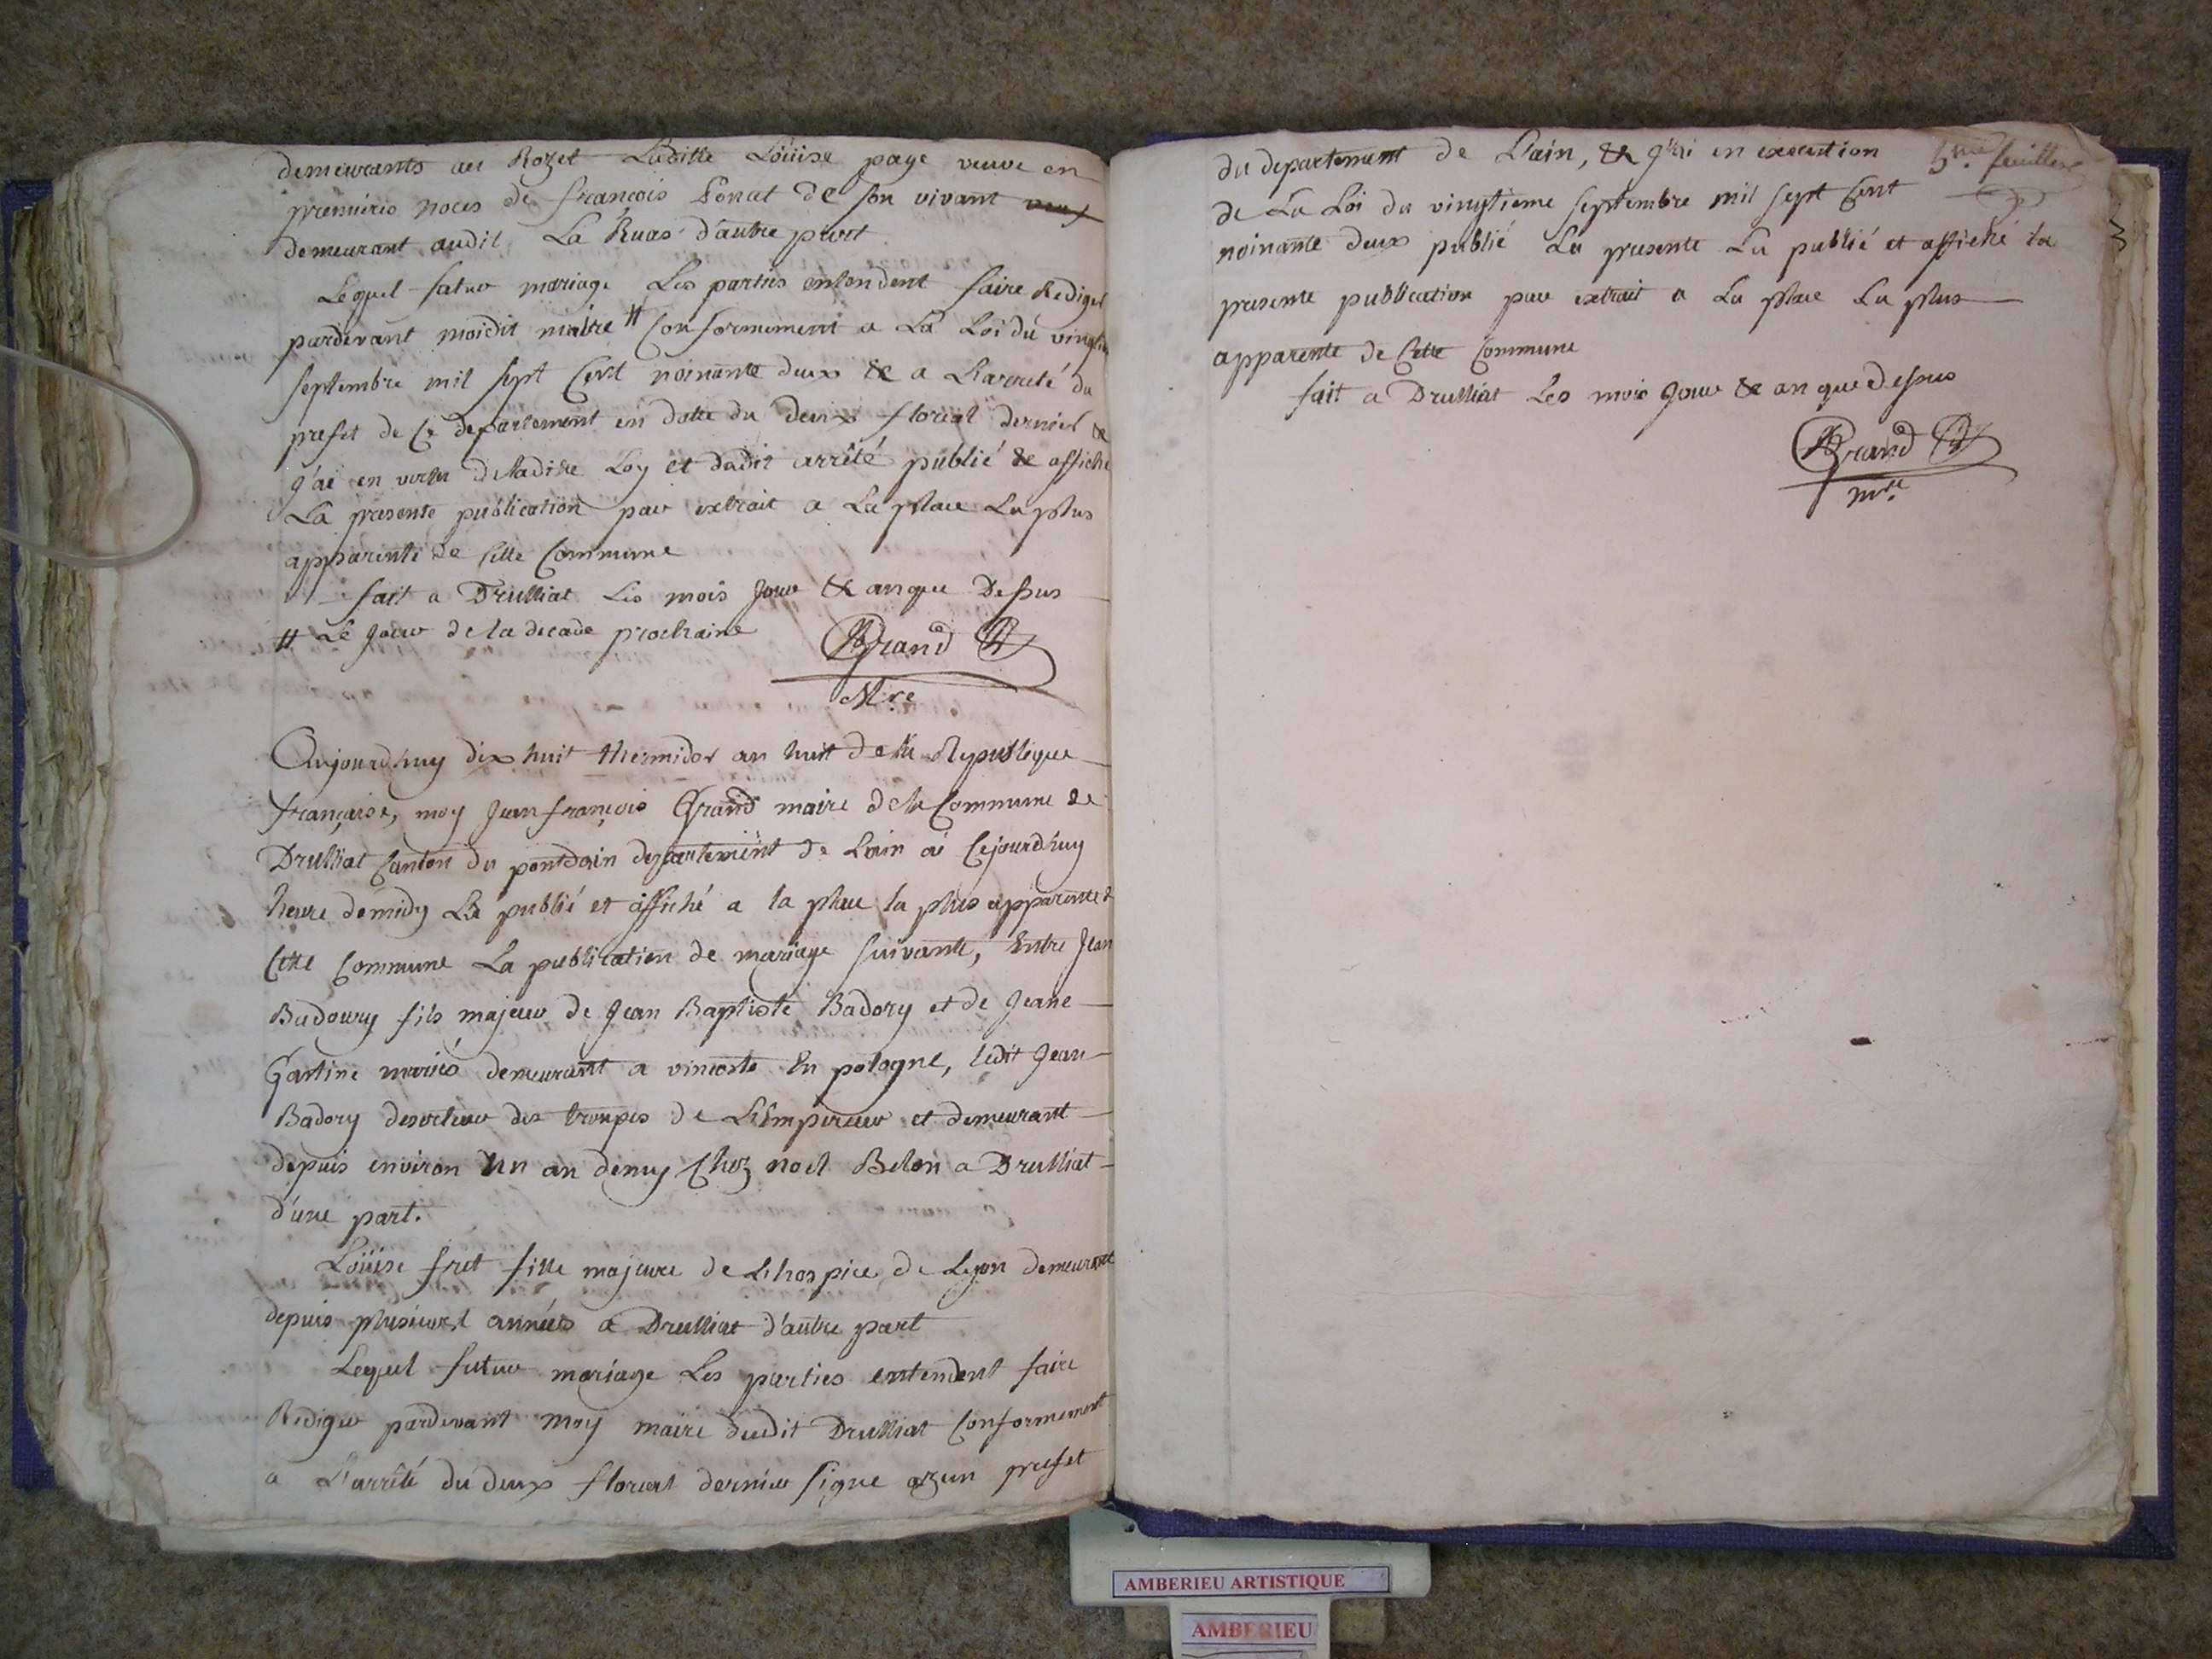 demeurants au Rozet Laditte Loüise page veuve en
premieres noces de francois Poncet de son vivant
demeurant audit La Ruas d'autre part
Lequel futur mariage Les parties entendent faire Rediger
pardevant moidit maitre # Conformement a La Loi du vingtie
septembre mil sept Cent noinante deux & a L'arreté du
prefet de Ce departement en datte du deux floreal dernier &
j'ai en vertu de ladite Loy et dudit arrêté publié & affiché
La presente publication par extrait a La place La plus
apparente de Cette Commune
fait a Drulliat Les mois Jour & an que Dessus
# Le Jour de la decade prochaine
Grand
M.re
Aujourd'huy dix huit thermidor an huit de la Republique
française, moy Jean françois Grand maire de la Commune de
Drulliat Canton du pontdain departement de Lain ai Cejourd'huy
heure de midy Lu publié et affiché a la place la plus apparente d
Cette Commune La publication de mariage suivante, Entre Jean
Badoury fils majeur de Jean Baptiste Badory et de Jeane
Gartine mariés demeurant a En pologne, ledit Jean
Badory deserteur des troupes de L'Empereur et demeurant
depuis environ Un an demy Chez noel Belon a Drulliat
d'une part.
Loüise fret fille majeure de L'hospice de Lyon demeurant
depuis plusieurs années a Drulliat d'autre part
Lequel futur mariage Les parties entendent faire
Rediger pardevant moy maire dudit Drulliat Conformement
a L'arrêté du deux floreal dernier signe ozun prefet
5.me feuillet
du departement de L'ain, & j'ai en execution
de La Loi du vingtieme septembre mil sept Cent
noinante deux publié La presente Lu publié et affiché la
presente publication par extrait a La place La plus
apparente de Cette Commune
fait a Drulliat Les mois Jour & an que dessus
Grand
m.re
AMBERIEU ARTISTIQUE
AMBERIEU